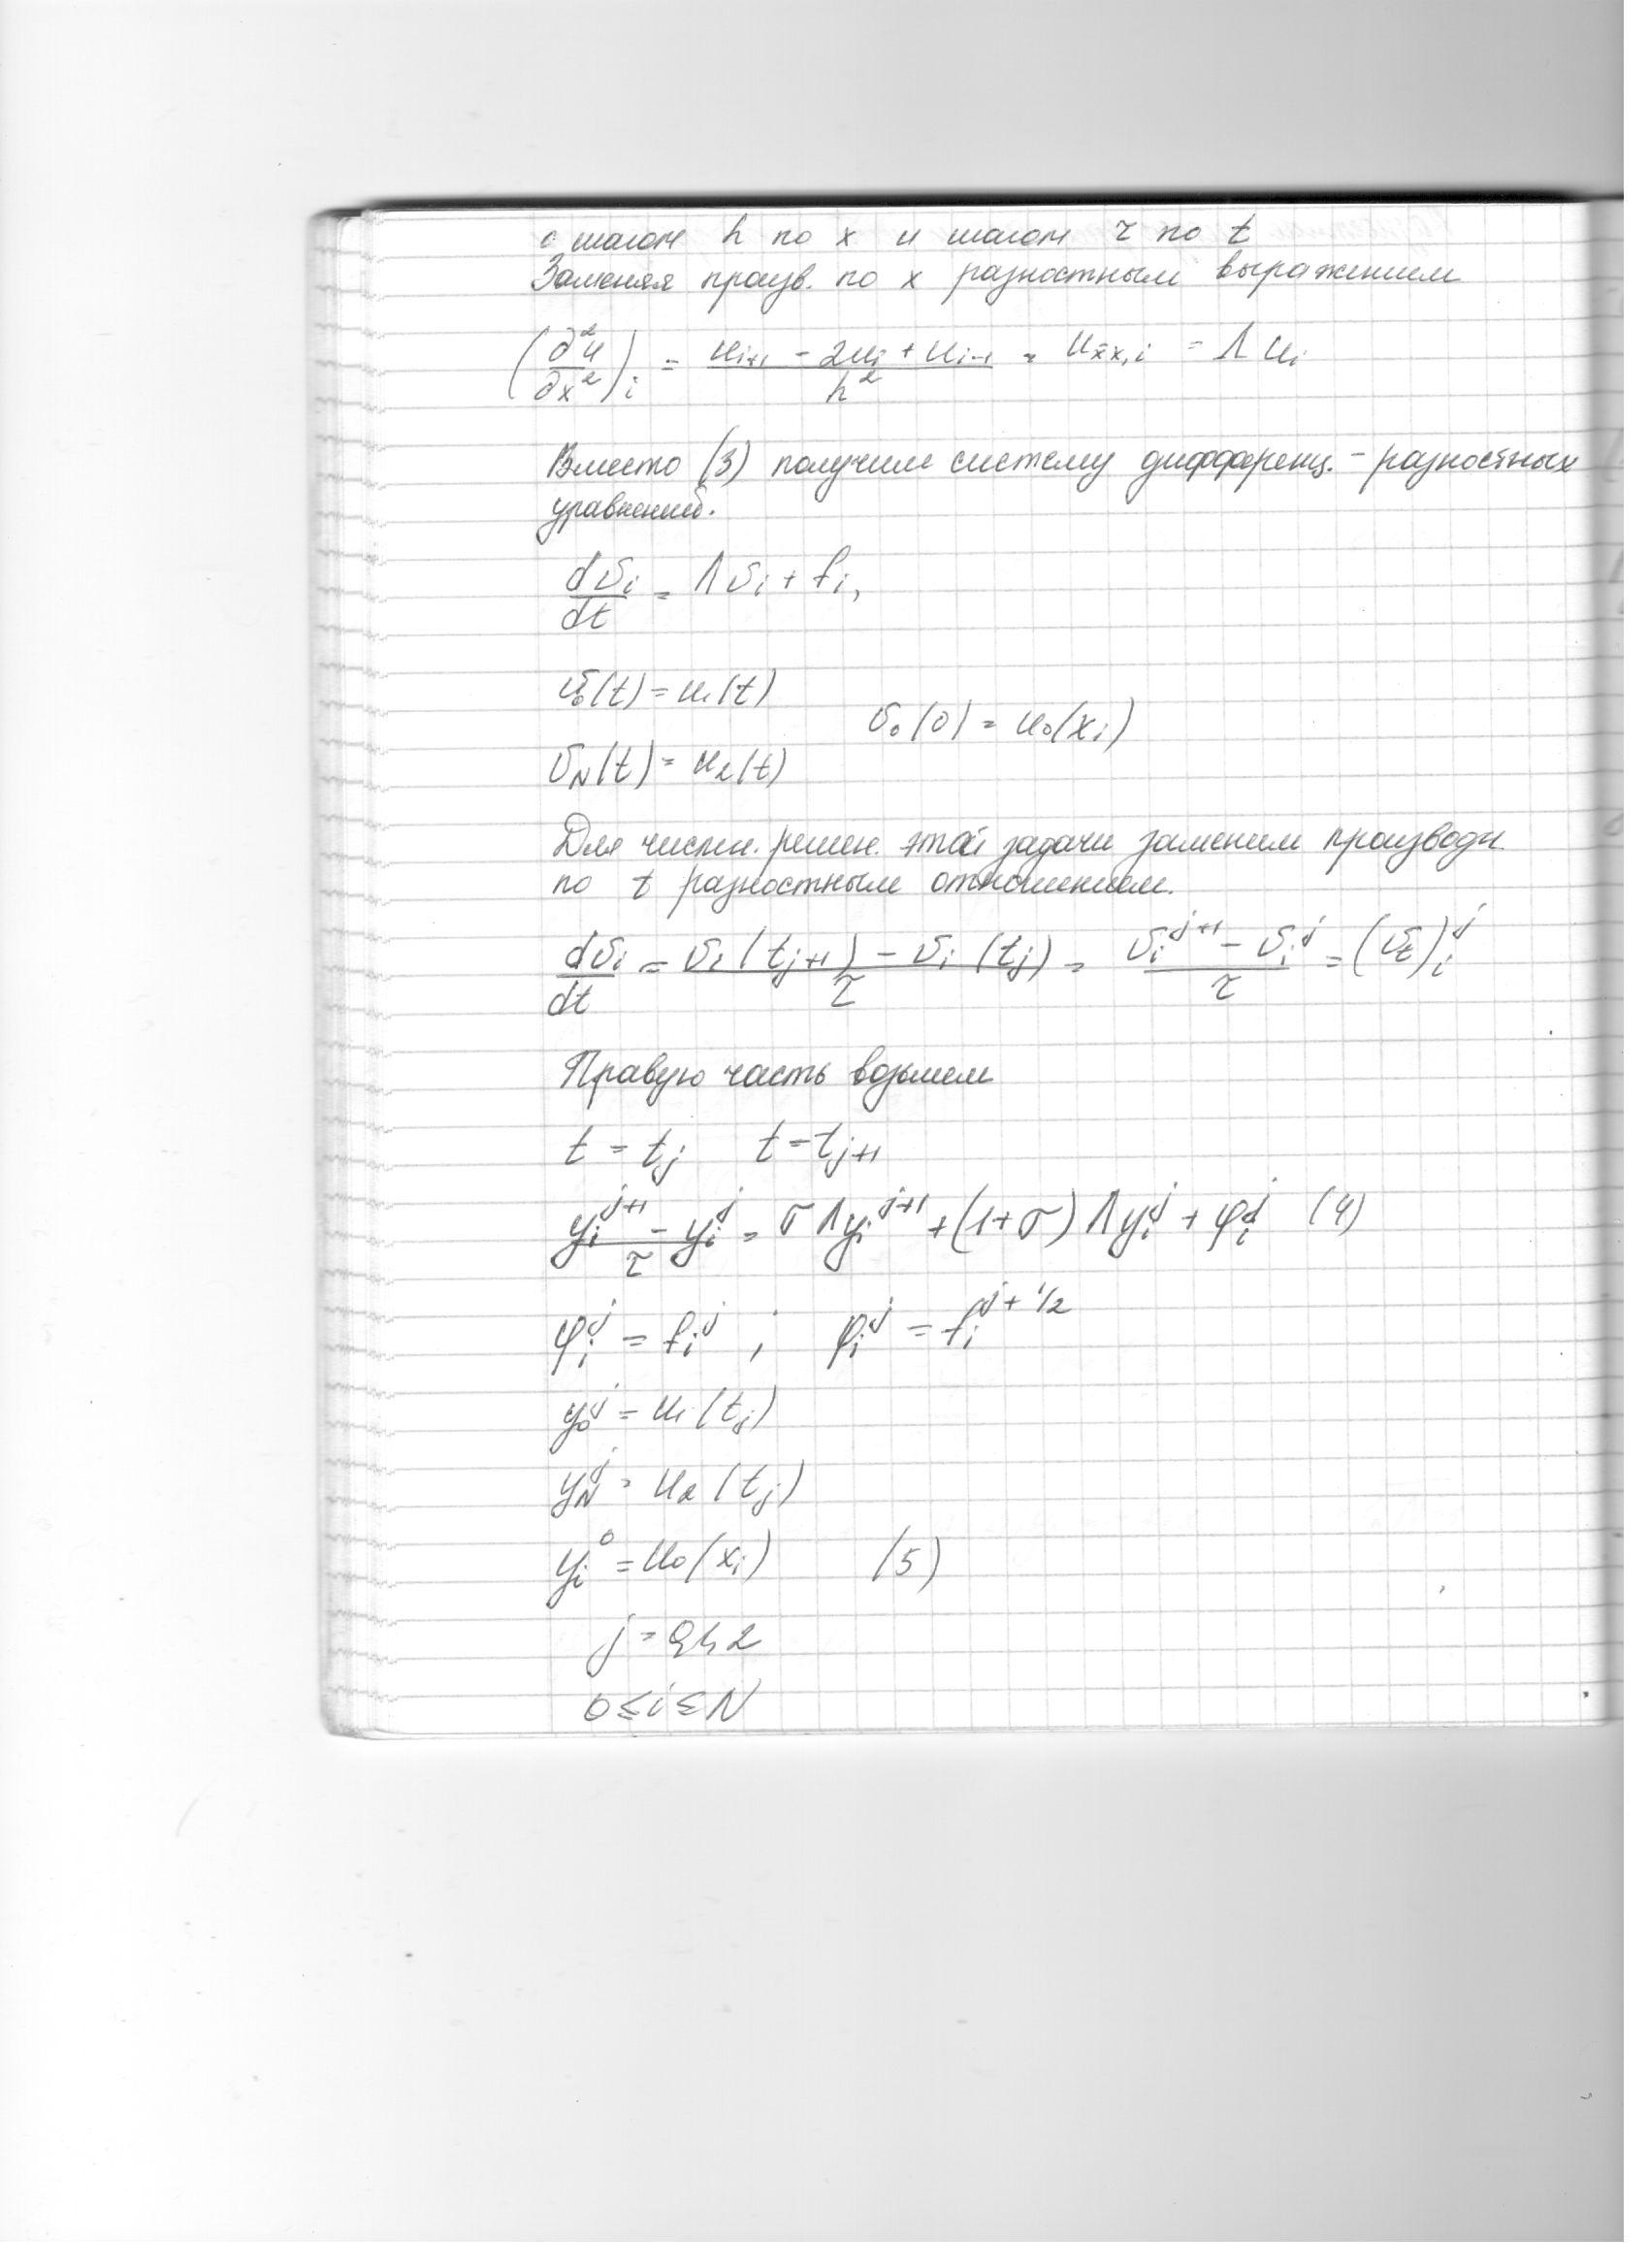 с шагом h по x и шагом τ по t
Заменяя произв. по x разностным выражением
(∂²u/∂x²)_i = (u_{i+1} - 2u_i + u_{i-1})/h² = u_{x̄x,i} = Λu_i
Вместо (3) получим систему дифференц. - разностных
уравнений.
dυ_i/dt = Λυ_i + f_i,
υ_0(t) = u_1(t)
υ_0(0) = u_0(x_i)
υ_N(t) = u_2(t)
Для числен. решен. этой задачи заменим производн.
по t разностным отношением.
dυ_i/dt = (υ_i(t_{j+1}) - υ_i(t_j))/τ = (υ_i^{j+1} - υ_i^j)/τ = (υ_t)_i^j
Правую часть возьмем
t = t_j t = t_{j+1}
(y_i^{j+1} - y_i^j)/τ = σΛy_i^{j+1} + (1+σ)Λy_i^j + φ_i^j (4)
φ_i^j = f_i^j ; φ_i^j = f_i^{j+1/2}
y_0^j = u_1(t_j)
y_N^j = u_2(t_j)
y_i^0 = u_0(x_i) (5)
j = 0,1,2
0≤i≤N